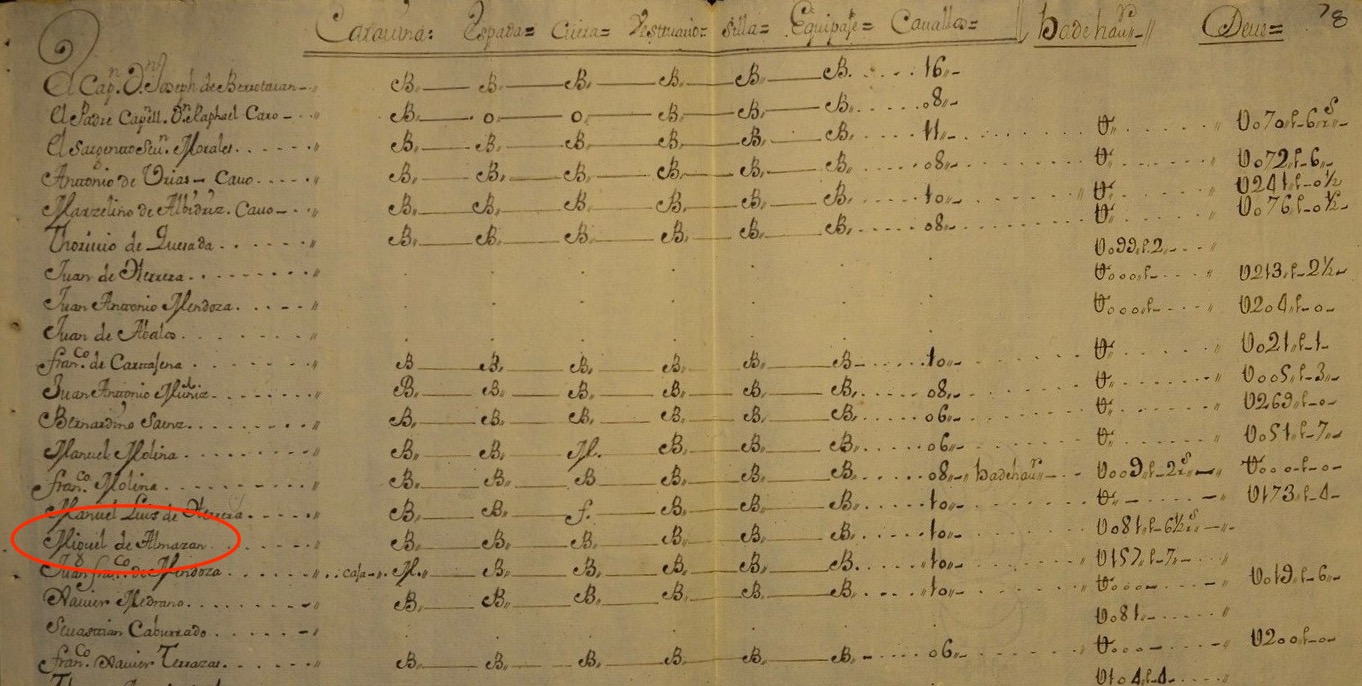 Caravina= Espada= Cuera= Vestuario= Silla= Equipaje= Cavallos= || hadehaur || Deve= 78
El Cap.n D.n Joseph de Berrotaran B. B. B. B. B. B. 16
El Padre Capell.n D.n Raphael Caro B. o. o. B. B. B. 08
El Sargento Seu.n Morales B. B. B. B. B. B. 11 U U070p6rs
Antonio de Urias Cauo B. B. B. B. B. B. 08 U U072p6
Marzelino de Albidrez Cauo B. B. B. B. B. B. 10 U U241p0½
Thoriuio de Quesada B. B. B. B. B. B. 08 U U076p0½
Juan de Herrera U099p2
Juan Antonio Mendoza U000p U213p2½
Juan de Abalos U000p U204p0
fran.co de Cartajena B. B. B. B. B. B. 10 U U021p1
Juan Antonio Muñiz B. B. B. B. B. B. 08 U U005p3
Bernardino Sainz B. B. B. B. B. B. 06 U U269p0
Manuel Molina B. B. M. B. B. B. 06 U U051p7
fran.co Molina B. B. B. B. B. B. 08 hadehaur U009p2rs U000p0
Manuel Luis de Herrera B. B. f. B. B. B. 10 U U173p4
Miguel de Almazan B. B. B. B. B. B. 10 U081p6½rs
Juan fran.co de Mendoza caja M. B. B. B. B. B. 10 U157p7
Xauier Medrano B. B. B. B. B. B. 10 U000 U019p6
Seuastian Caburrado U081
fran.co Xauier Terrazas B. B. B. B. B. B. 06 U000 U200p0
U104p4